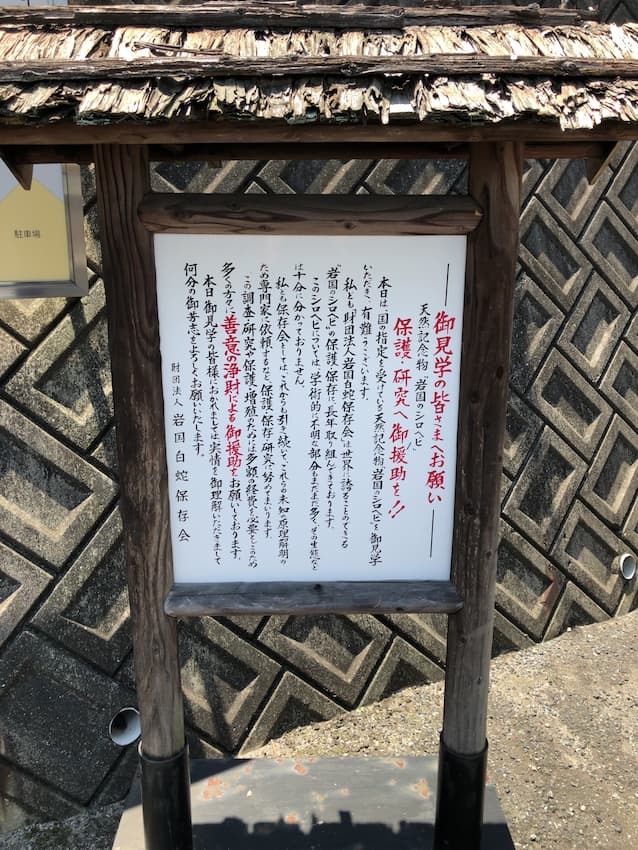 御見学の皆さまへお願い
天然記念物「岩国のシロヘビ」
保護・研究へ御援助を!!
本日は、国の指定を受けている天然記念物「岩国のシロヘビ」を御見学
いただき、有難うございます。
私ども財団法人岩国白蛇保存会は、世界に誇ることのできる
「岩国のシロヘビ」の保護・保存に長年取り組んできております。
このシロヘビについては、学術的に不明な部分もまだまだ多く、その生態など
は十分に分かっておりません。
私ども保存会としては、これからも引き続いて、これらの未知の原理解明の
ため専門家へ依頼するなど、保護・保存・研究に努めてまいります。
この調査・研究や保護・増殖のためには多額の経費を必要としこのため
多くの方々に善意の浄財による御援助をお願いしております。
本日御見学の皆様におかれましては実情を御理解いただきまして
何分の御芳志をよろしくお願いいたします。
財団法人 岩国白蛇保存会
駐車場